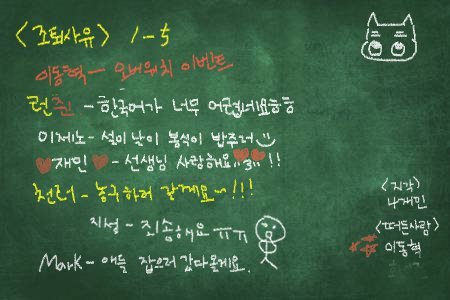 <조퇴사유> 1-5
이동혁 - 오버워치 이벤트
런쥔 - 한국어가 너무 어렵네요ㅎㅎ
이제노 - 설이 낯이 봉식이 밥주러
♥재민♥ - 선생님 사랑해요 !!
천러 - 농구하러 갈게요~!!!
지성 - 죄송해요 ㅠㅠ
Mark - 애들 잡으러 갔다올게요.
<지각>
나재민
<떠든사람>
이동혁